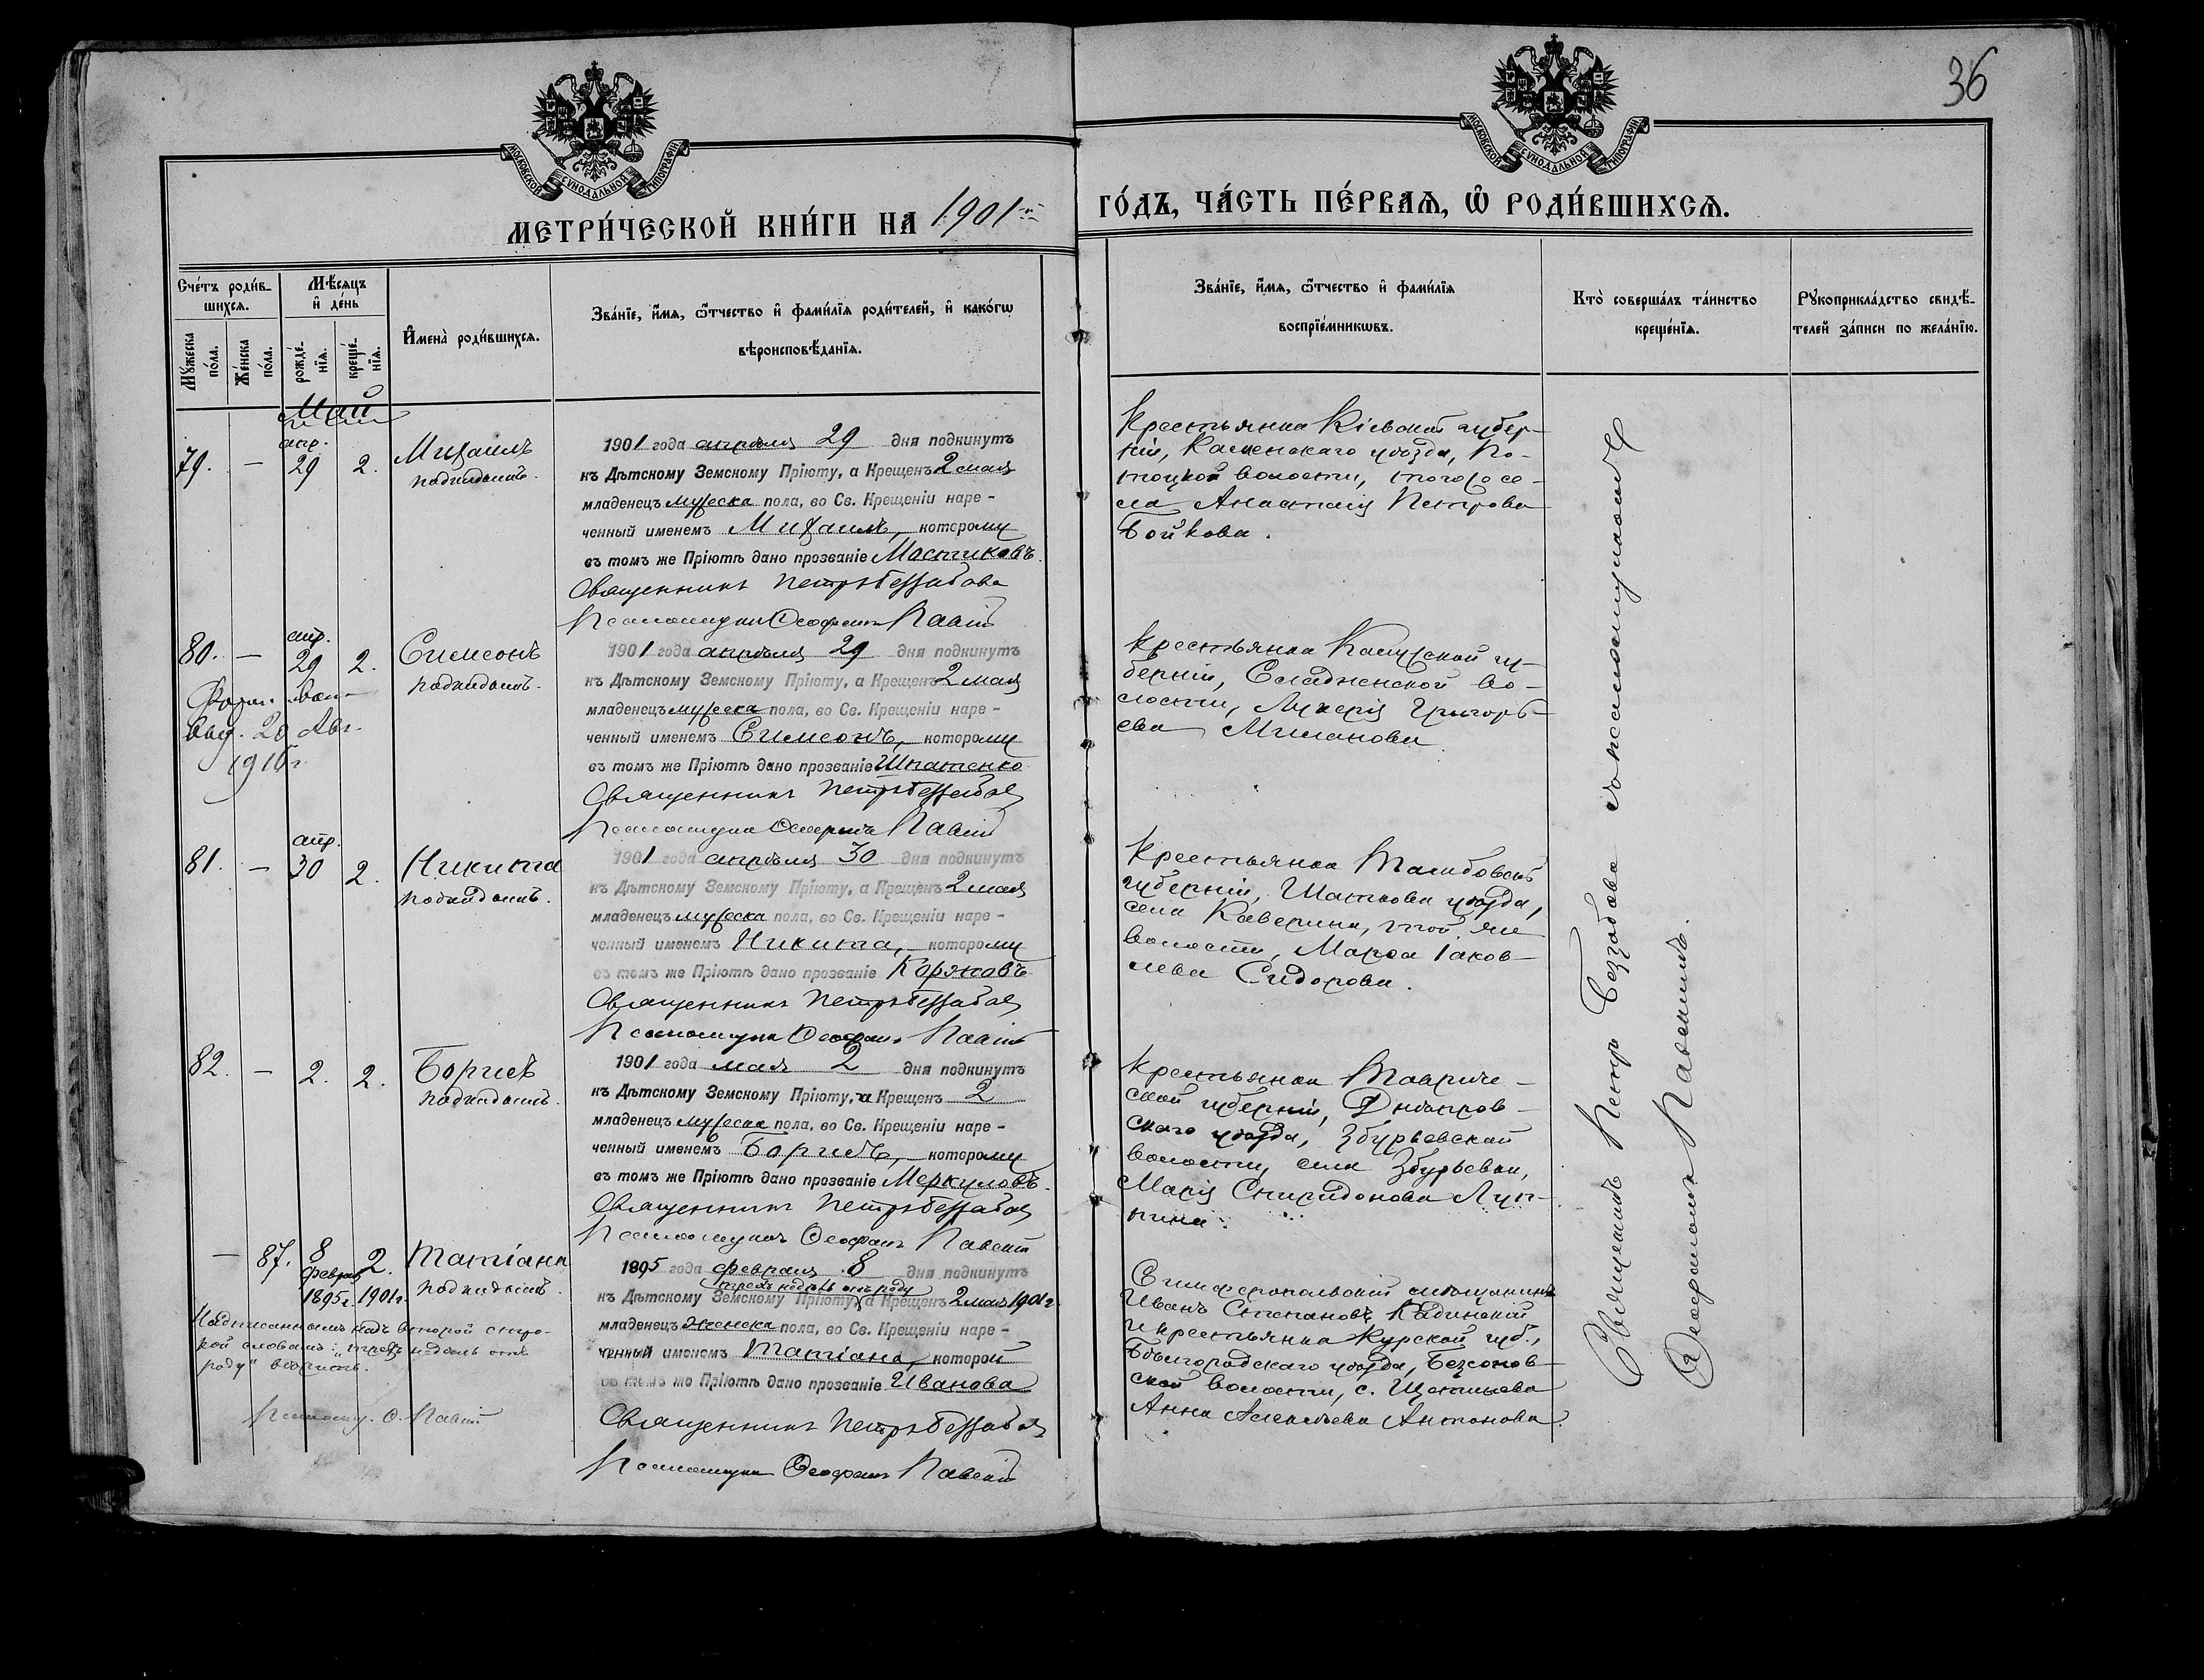 36
МОСКОВСКОЙ СѴНОДАЛЬНОЙ ТИПОГРАФІИ
МОСКОВСКОЙ СѴНОДАЛЬНОЙ ТИПОГРАФІИ
МЕТРИ́ЧЕСКОЙ КНИ́ГИ НА 1901й
ГО́ДЪ, ЧА́СТЬ ПЕ́РВАѦ, Ѽ РОДИ́ВШИХСѦ.
Сче́тъ роди́в-
шихсѧ.
Мѣ́сяцъ
и҆ де́нь
Му́жеска
по́ла.
Же́нска
по́ла.
рожде́-
нїѧ.
креще́-
нїѧ.
И҆мена̀ роди́вшихсѧ.
Зва́нїе, и҆́мѧ, ѻ҆́тчество и҆ фамѝлїѧ роди́телей, и҆ како́гѡ
вѣроисповѣ́данїѧ.
Зва́нїе, и҆́мѧ, ѻ҆́тчество и҆ фамѝлїѧ
воспрїе́мникѡвъ.
Кто̀ соверша́лъ та́инство
креще́нїѧ.
Рꙋкоприкла́дство свидѣ́-
телей за́писи по жела́нїю.
Май
79. — апр. 29 2. Михаилъ
подкидышъ.
1901 года апрѣля 29 дня подкинутъ
къ Дѣтскому Земскому Пріюту, а Крещенъ 2 мая
младенецъ мужеска пола, во Св. Крещеніи наре-
ченный именемъ Михаилъ, которому
въ томъ же Пріютѣ дано прозваніе Мостиковъ.
Священникъ Петръ Беззабава
Псаломщикъ Ѳеофанъ Павскій
Крестьянка Кіевской губер-
ніи, Каневскаго уѣзда, По-
тоцкой волости, тогоже се-
ла Анастасія Петрова
Бойкова.
80. — апр. 29 2. Симеонъ
подкидышъ.
20 Авг.
1916 г.
1901 года апрѣля 29 дня подкинутъ
къ Дѣтскому Земскому Пріюту, а Крещенъ 2 мая
младенецъ мужеска пола, во Св. Крещеніи наре-
ченный именемъ Симеонъ, которому
въ томъ же Пріютѣ дано прозваніе Шпатенко
Священникъ Петръ Беззабава
Псаломщикъ Ѳеофанъ Павскій
Крестьянка Калужской гу-
берніи, во-
лости, Лукерія Григорь-
ева Миланова
81. — апр. 30 2. Никита
подкидышъ.
1901 года апрѣля 30 дня подкинутъ
къ Дѣтскому Земскому Пріюту, а Крещенъ 2 мая
младенецъ мужеска пола, во Св. Крещеніи наре-
ченный именемъ Никита, которому
въ томъ же Пріютѣ дано прозваніе Коржовъ
Священникъ Петръ Беззабава
Псаломщикъ Ѳеофанъ Павскій
Крестьянка Тамбовской
губерніи, Шатскова уѣзда,
села Каверина, той же
волости, Марѳа Іаков-
лева Сидорова.
82. — 2. 2. Борисъ
подкидышъ.
1901 года мая 2 дня подкинутъ
къ Дѣтскому Земскому Пріюту, а Крещенъ 2
младенецъ мужеска пола, во Св. Крещеніи наре-
ченный именемъ Борисъ, которому
въ томъ же Пріютѣ дано прозваніе Меркуловъ.
Священникъ Петръ Беззабава
Псаломщикъ Ѳеофанъ Павскій
Крестьянка Тавриче-
ской губерніи, Днѣпров-
скаго уѣзда, Збурьевской
волости, села Збурьевки,
Марія Спиридонова Луп-
пина.
— 87. 8 февраля 1895 г. 2. 1901 г. Татіана
подкидышъ.
1895 года февраля 8 дня подкинутъ
трехъ недѣль отъ роду
къ Дѣтскому Земскому Пріюту, а Крещенъ 2 мая 1901 г
младенецъ женска пола, во Св. Крещеніи наре-
ченный именемъ Татіана, которой
въ томъ же Пріютѣ дано прозваніе Иванова
Священникъ Петръ Беззабава
Псаломщикъ Ѳеофанъ Павскій
Надписанному надъ второй стро-
кой словамъ: „трехъ недѣль отъ
роду" вѣрить.
Псаломщ. Ѳ. Павскій
Симферопольскій мѣщанинъ
Иванъ Степановъ Кадинскій
и крестьянка Курской губ.,
Бѣлгородскаго уѣзда, Безсонов-
ской волости, с.
Анна Алексѣева Антонова.
Священникъ Петръ Беззабава съ псаломщикомъ
Ѳеофаномъ Павскимъ.